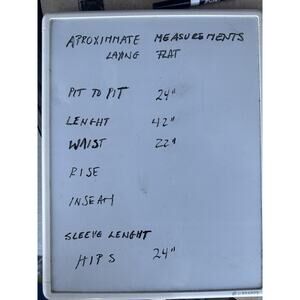 APROXIMMATE MEASUREMENTS
LAYING FLAT
PIT TO PIT 24"
LENGHT 42"
WAIST 22"
RISE
INSEAM
SLEEVE LENGHT
HIPS 24"